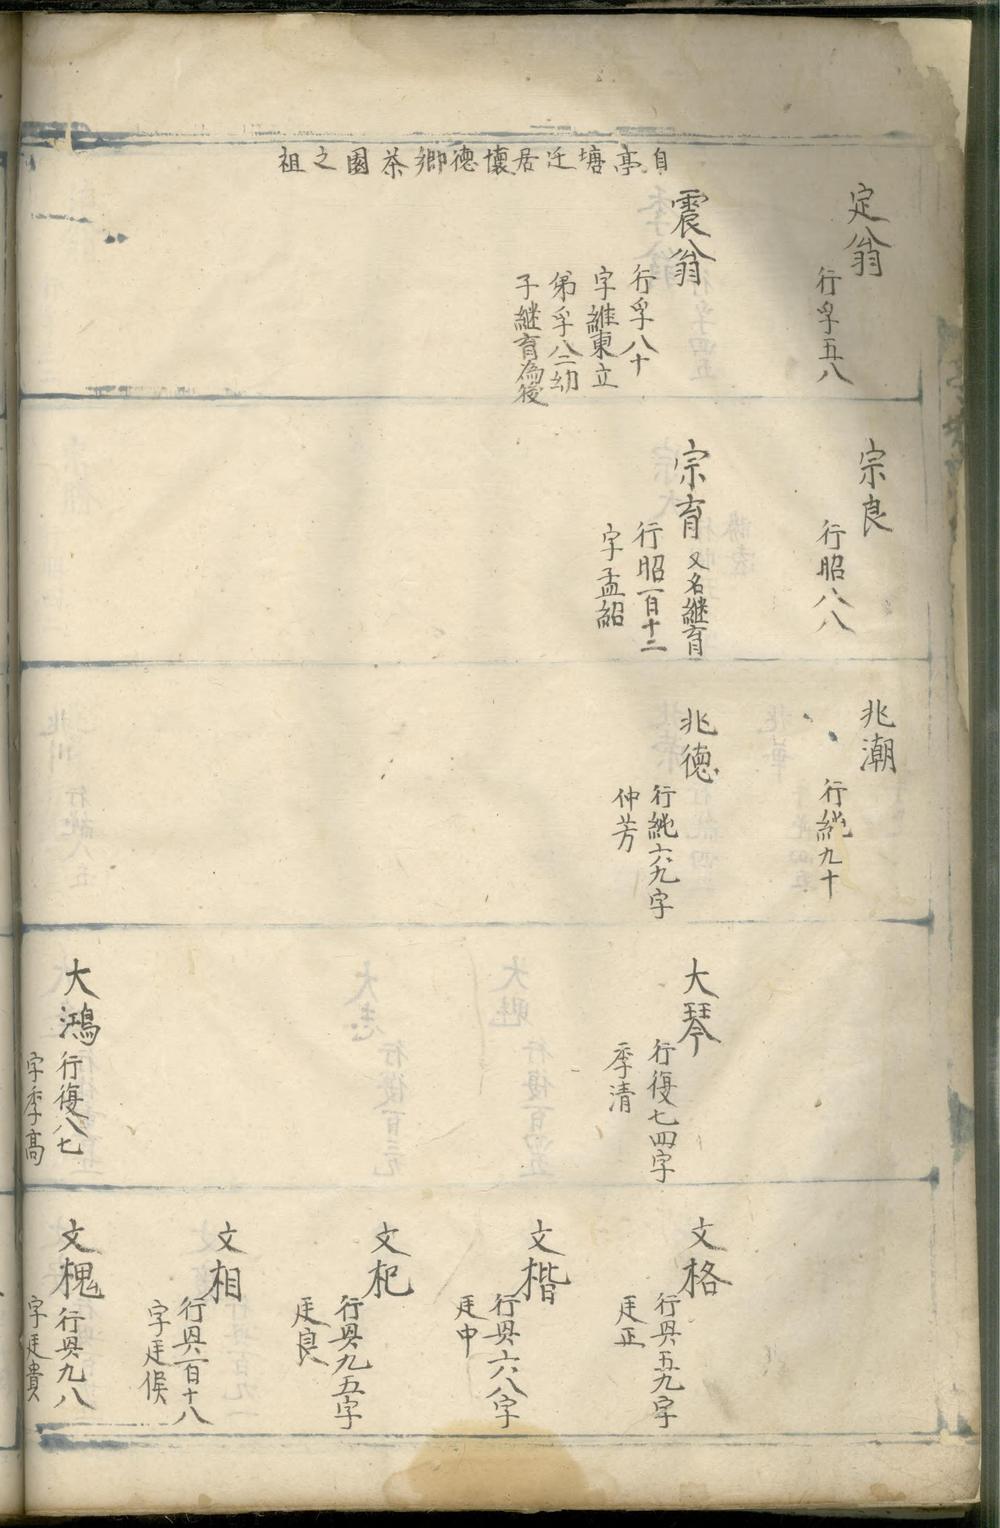 自亭塘迁居懷德鄉茶園之祖
定翁
行孚五八
震翁
行孚八十
字維東立
弟孚八二幼
子継育為後
宗良
行昭八八
宗育
又名継育
行昭一百十二
字孟紹
兆潮
行純九十
兆德
行純六九字
仲芳
大琴
行復七四字
季清
大鴻
行復八七
字季高
文格
行具五九字
廷正
文楷
行具六八字
廷中
文杞
行具九五字
廷良
文相
行具一百十八
字廷侯
文槐
行具九八
字廷貴